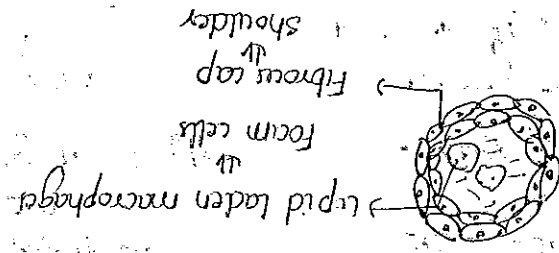 Lipid laden macrophages
Foam cells
Fibrous cap
Shoulder